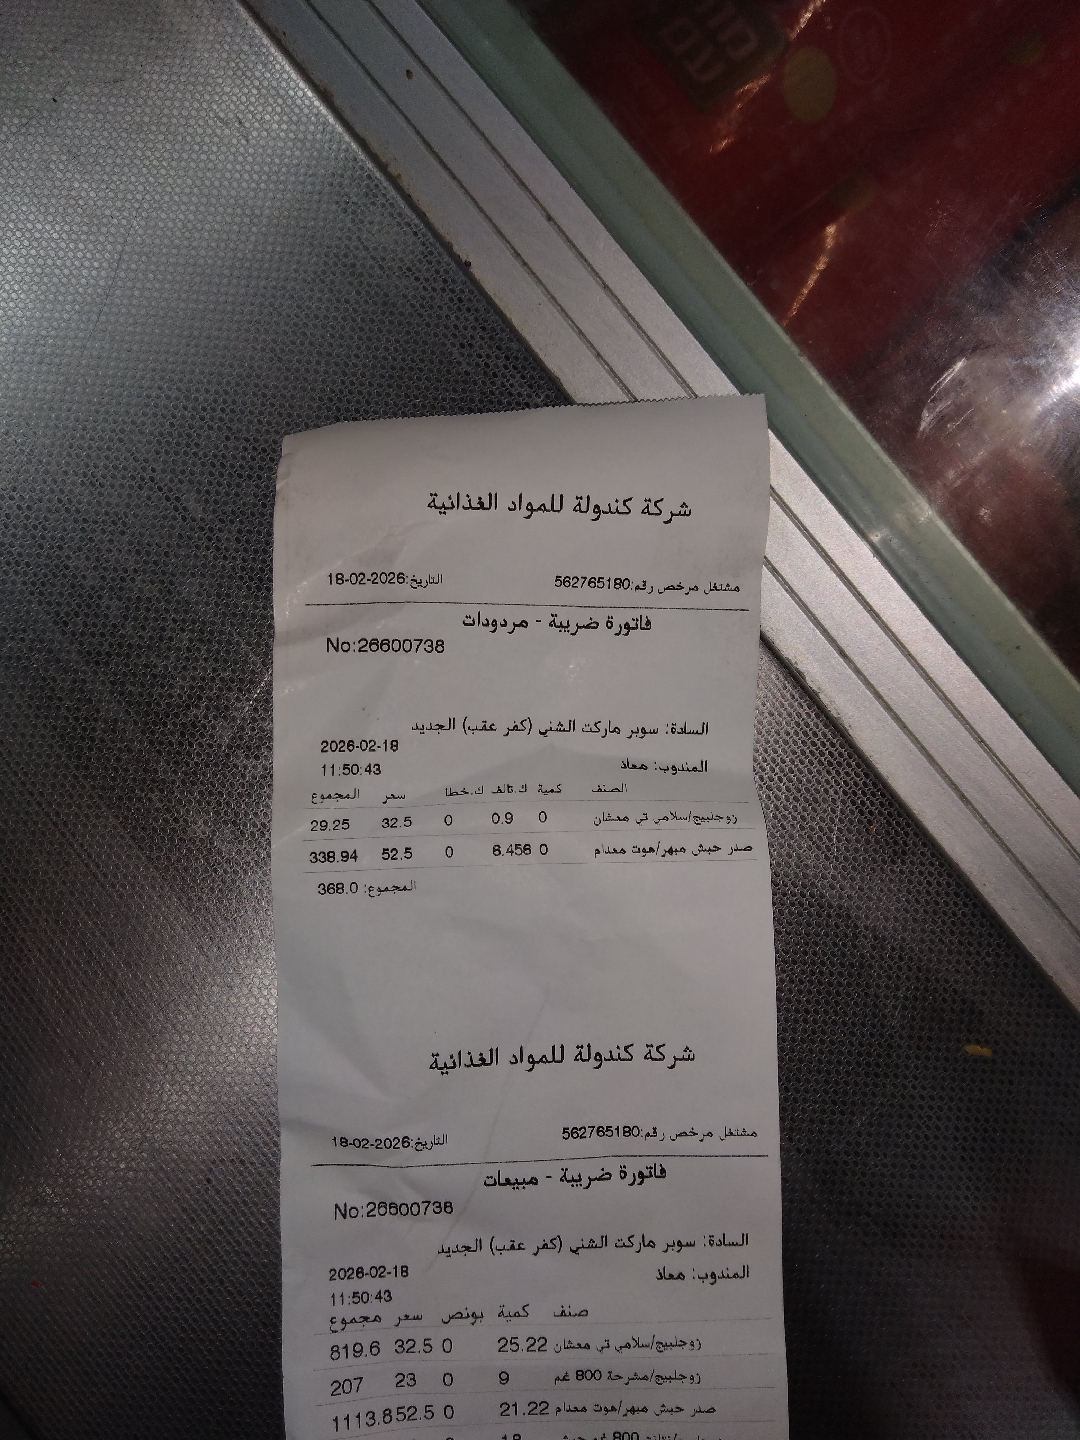 מח
עם
شركة كندولة للمواد الغذائية
مشتغل مرخص رقم:562765180 التاريخ:18-02-2026
فاتورة ضريبة - مردودات
No:26600738
السادة: سوبر ماركت الشني (كفر عقب) الجديد
2026-02-18
المندوب: معاذ
11:50:43
الصنف كمية ك.تالف ك.خطا سعر المجموع
زوجلبيج/سلامي تي معشان 0 0.9 0 32.5 29.25
صدر حبش مبهر/هوت معدام 0 6.456 0 52.5 338.94
المجموع: 368.0
شركة كندولة للمواد الغذائية
مشتغل مرخص رقم:562765180 التاريخ:18-02-2026
فاتورة ضريبة - مبيعات
No:26600738
السادة: سوبر ماركت الشني (كفر عقب) الجديد
2026-02-18
المندوب: معاذ
11:50:43
صنف كمية بونص سعر مجموع
زوجلبيج/سلامي تي معشان 25.22 0 32.5 819.6
زوجلبيج/مشرحة 800 غم 9 0 23 207
صدر حبش مبهر/هوت معدام 21.22 0 52.5 1113.8